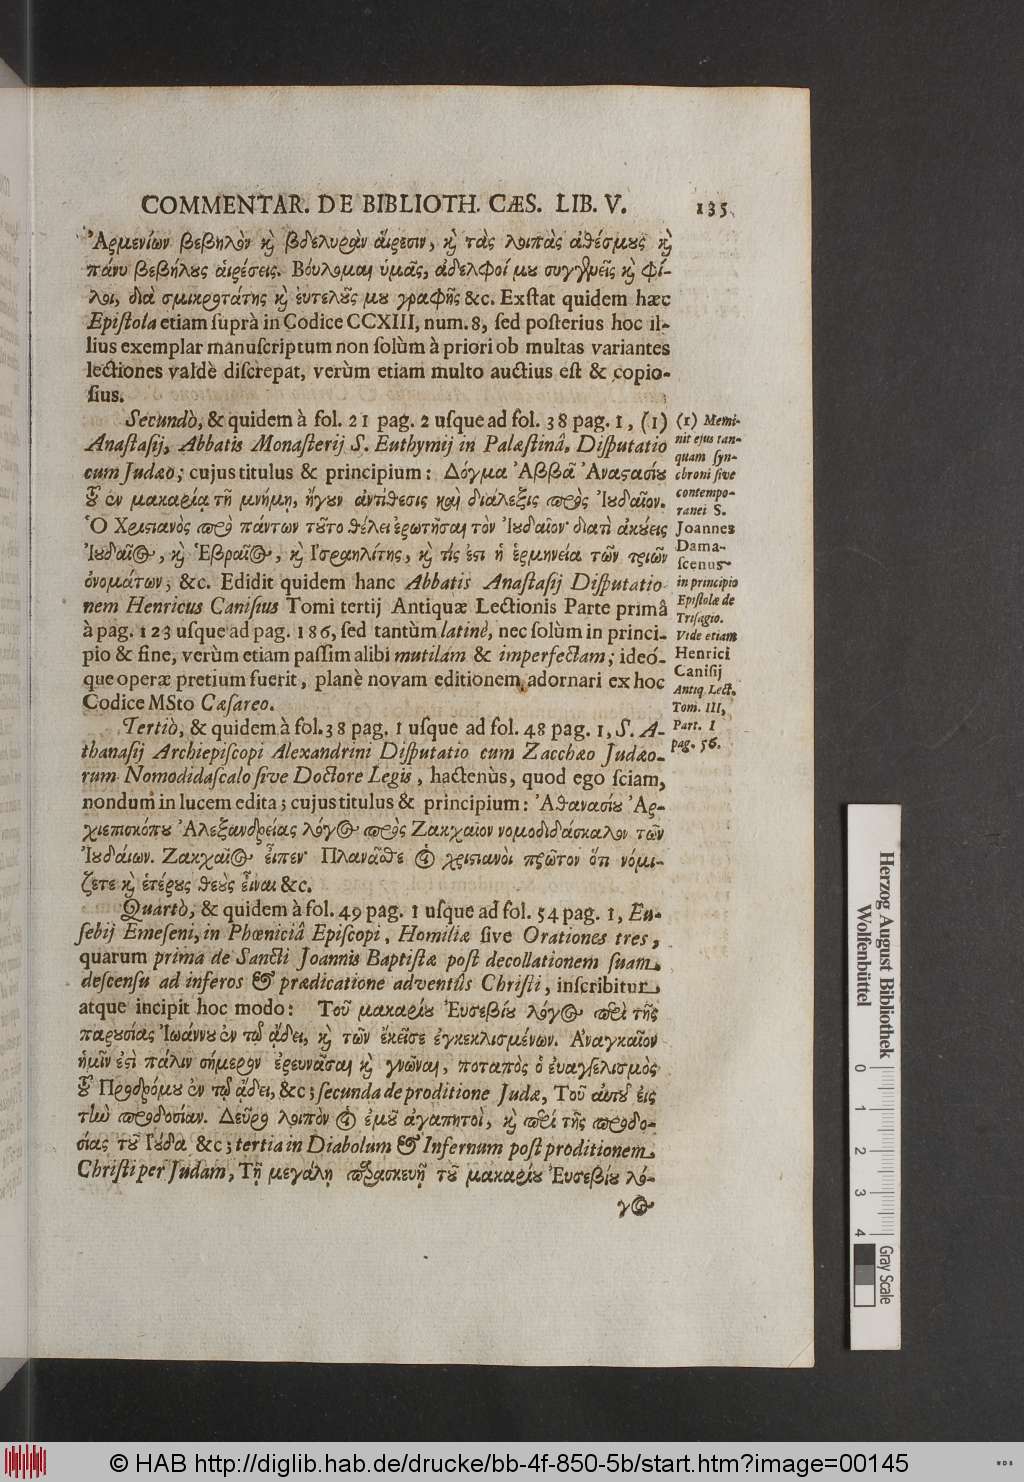 COMMENTAR. DE BIBLIOTH. CÆS. LIB. V. 135
Ἀρμενίων βεβηλὸν καὶ βδελυρὰν αἵρεσιν, καὶ τὰς λοιπὰς ἀθέσμους καὶ
πάνυ βεβήλους αἱρέσεις. Βούλομαι ὑμᾶς, ἀδελφοί μου συγγενεῖς καὶ φί-
λοι, διὰ σμικροτάτης καὶ ἐυτελοῦς μου γραφῆς &c. Exſtat quidem hæc
Epiſtola etiam ſuprà in Codice CCXIII, num. 8, ſed poſterius hoc il-
lius exemplar manuſcriptum non ſolùm à priori ob multas variantes
lectiones valdè diſcrepat, verùm etiam multo auctius eſt & copio-
ſius.
Secundò, & quidem à fol. 21 pag. 2 uſque ad fol. 38 pag. 1, (1)
Anaſtaſij, Abbatis Monaſterij S. Euthymij in Palæſtinâ, Diſputatio
cum Judæo; cujus titulus & principium: Δόγμα Ἀββᾶ Ἀναστασίου
τοῦ ἐν μακαρίᾳ τῇ μνήμῃ, ἤγουν ἀντίθεσις καὶ διάλεξις πρὸς Ἰουδαῖον.
Ὁ Χριστιανὸς πρὸ πάντων τοῦτο θέλει ἐρωτῆσαι τὸν Ἰουδαῖον· διατὶ ἀκούεις
Ἰουδαῖος, καὶ Ἑβραῖος, καὶ Ἰσραηλίτης, καὶ τίς ἐστι ἡ ἑρμηνεία τῶν τριῶν
ὀνομάτων; &c. Edidit quidem hanc Abbatis Anaſtaſij Diſputatio-
nem Henricus Caniſius Tomi tertij Antiquæ Lectionis Parte primâ
à pag. 123 uſque ad pag. 186, ſed tantùm latinè, nec ſolùm in princi-
pio & fine, verùm etiam paſſim alibi mutilam & imperfectam; ideó-
que operæ pretium fuerit, planè novam editionem adornari ex hoc
Codice MSto Cæſareo.
(1) Memi-
nit ejus tan-
quam ſyn-
chroni ſive
contempo-
ranei S.
Joannes
Dama-
ſcenus
in principio
Epiſtolæ de
Triſagio.
Vide etiam
Henrici
Caniſij
Antiq. Lect.
Tom. III,
Part. I
pag. 56.
Tertiò, & quidem à fol. 38 pag. 1 uſque ad fol. 48 pag. 1, S. A-
thanaſij Archiepiſcopi Alexandrini Diſputatio cum Zacchæo Judæo-
rum Nomodidaſcalo ſive Doctore Legis, hactenùs, quod ego ſciam,
nondum in lucem edita; cujus titulus & principium: Ἀθανασίου Ἀρ-
χιεπισκόπου Ἀλεξανδρείας λόγος πρὸς Ζακχαῖον νομοδιδάσκαλον τῶν
Ἰουδάιων. Ζακχαῖος εἶπεν· Πλανᾶσθε οἱ χριστιανοὶ πρῶτον ὅτι νόμι-
ζετε καὶ ἑτέρους θεοὺς εἶναι &c.
Quartò, & quidem à fol. 49 pag. 1 uſque ad fol. 54 pag. 1, Eu-
ſebij Emeſeni, in Phœniciâ Epiſcopi, Homiliæ ſive Orationes tres,
quarum prima de Sancti Joannis Baptiſtæ poſt decollationem ſuam
deſcenſu ad inferos & prædicatione adventûs Chriſti, inſcribitur
atque incipit hoc modo: Τοῦ μακαρίου Ἐυσεβίου λόγος περὶ τῆς
παρουσίας Ἰωάννου ἐν τῷ ᾅδει, καὶ τῶν ἐκεῖσε ἐγκεκλισμένων. Ἀναγκαῖον
ἡμῖν ἐστὶ πάλιν σήμερον ἐρευνᾶσαι καὶ γνῶναι, ποταπὸς ὁ ἐυαγγελισμὸς
τοῦ Προδρόμου ἐν τῷ ᾅδει, &c; ſecunda de proditione Judæ, Τοῦ αὐτοῦ ἐις
τὴν προδοσίαν. Δεῦρο λοιπὸν οἱ ἐμοῦ ἀγαπητοὶ, καὶ περὶ τῆς προδο-
σίας τοῦ Ἰούδα &c; tertia in Diabolum & Infernum poſt proditionem
Chriſti per Judam, Τῇ μεγάλῃ παρασκευῇ τοῦ μακαρίου Ἐυσεβίου λό-
γος
Herzog August Bibliothek
Wolfenbüttel
0 1 2 3 4
Gray Scale
© HAB http://diglib.hab.de/drucke/bb-4f-850-5b/start.htm?image=00145